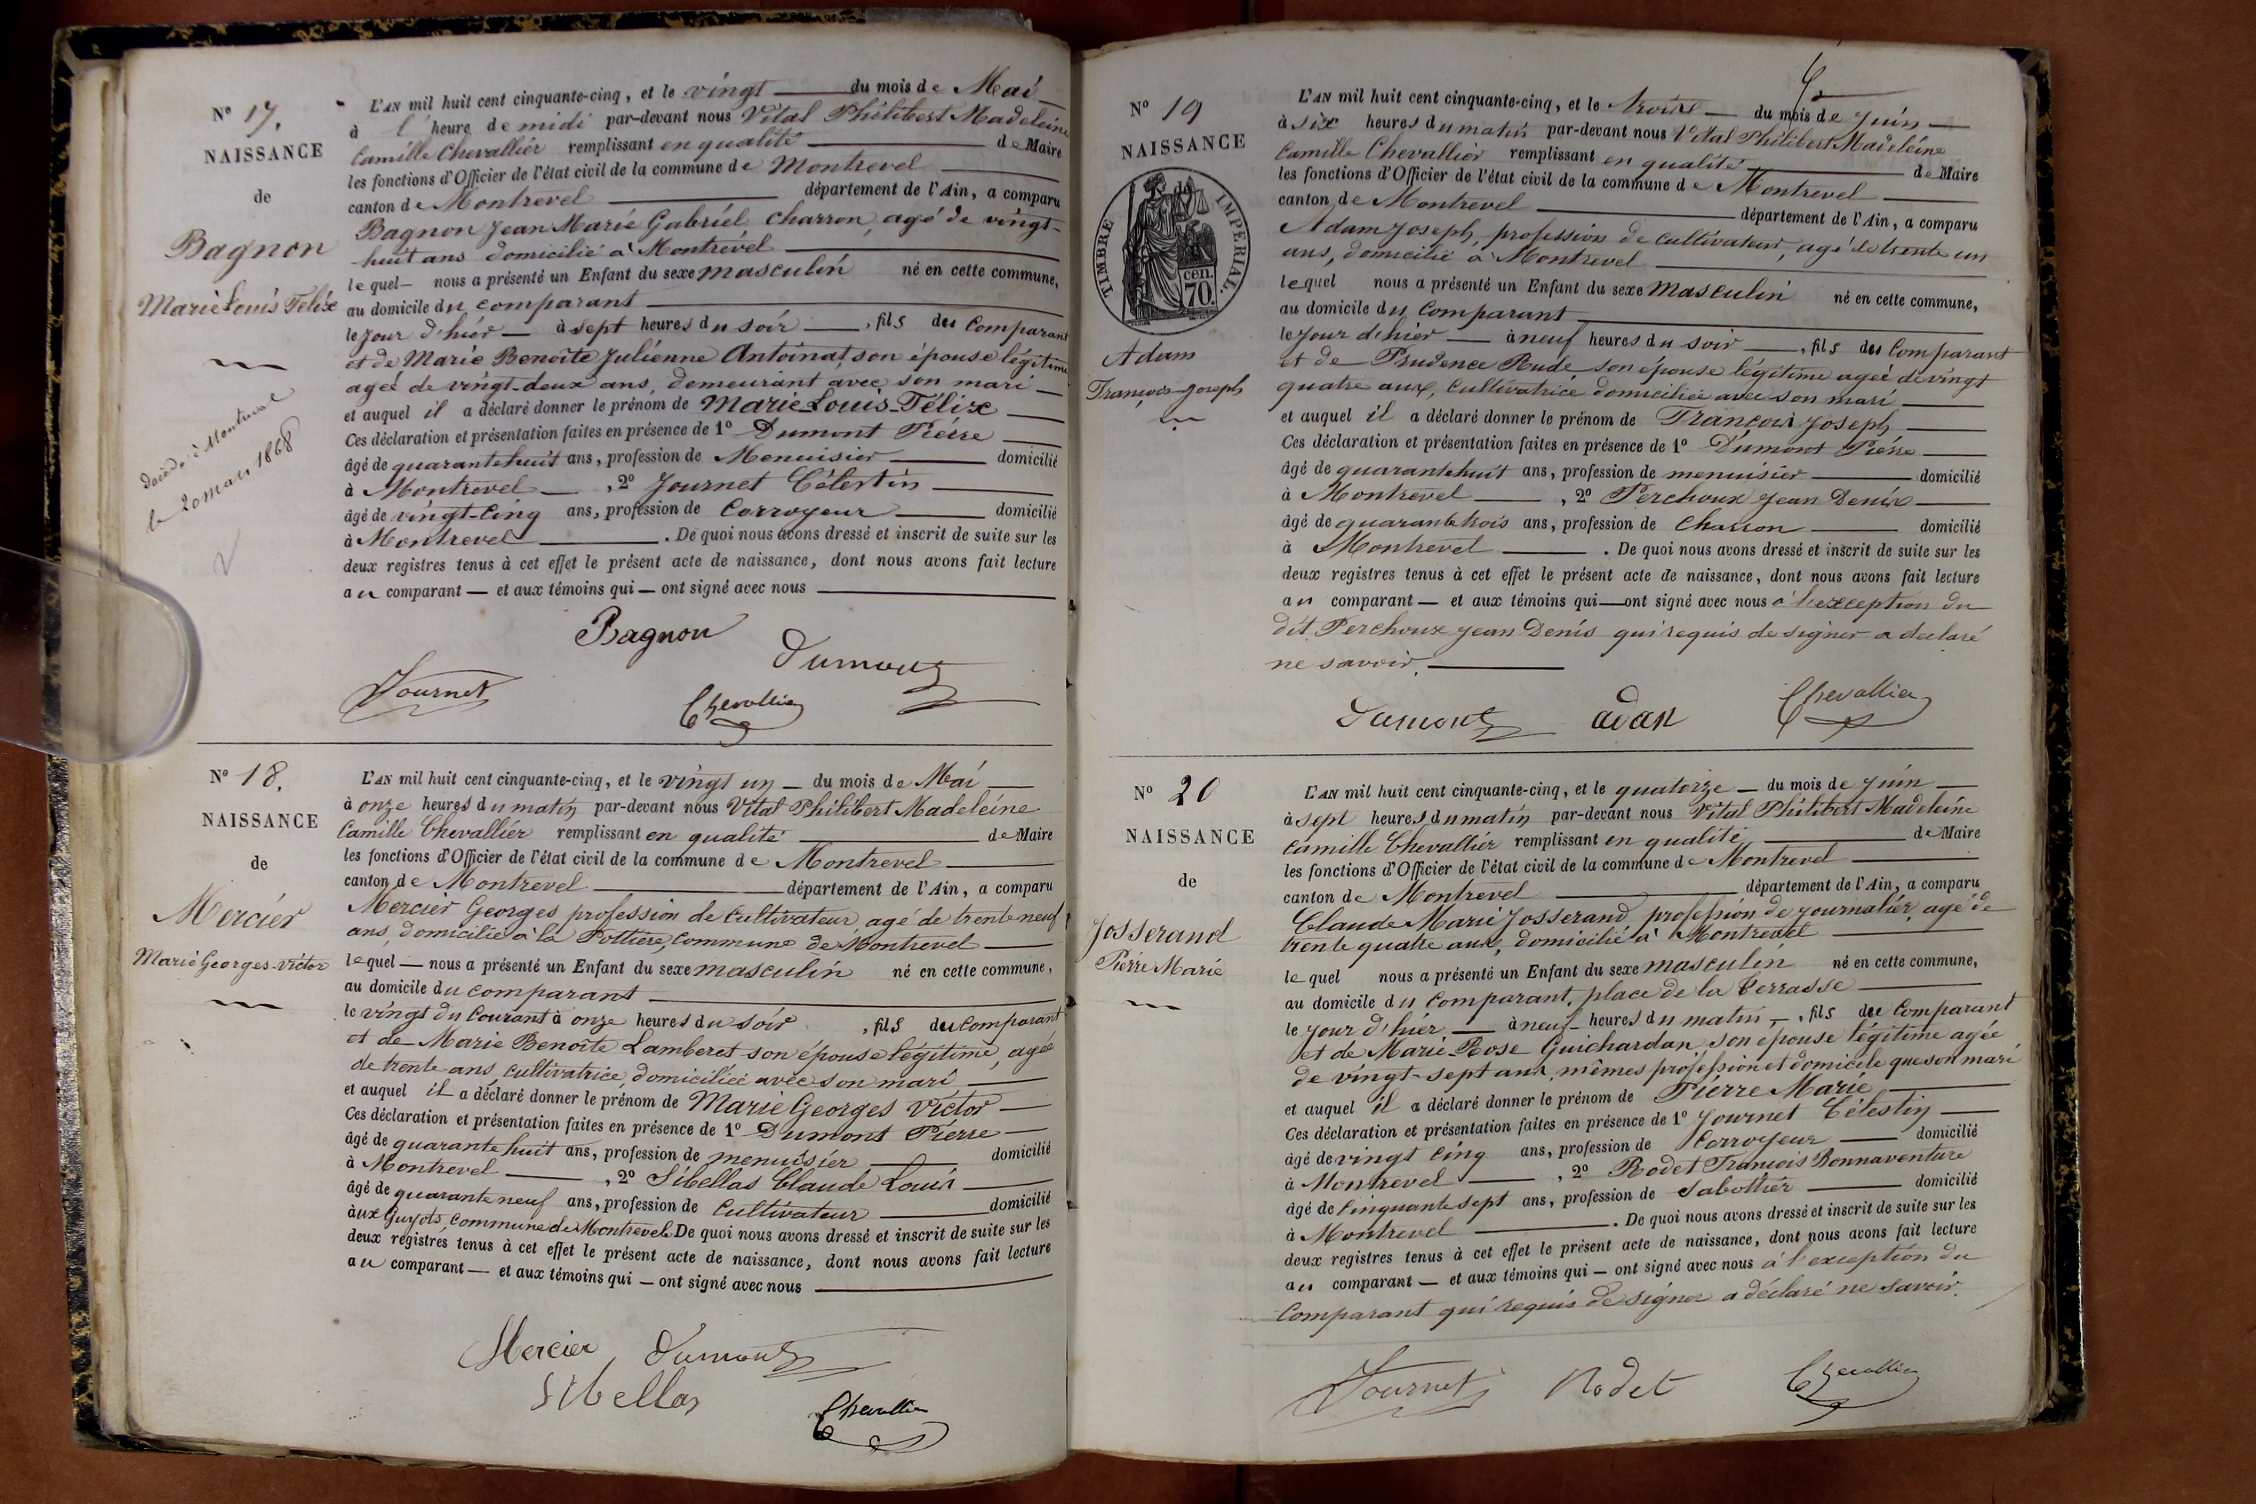 Nº 17.
NAISSANCE
de
Bagnon
Marie Louis Félix
décédé à Montrevel
le 20 mars 1868
L'AN mil huit cent cinquante-cinq, et le vingt du mois de Mai
à l'heure de midi par-devant nous Vital Philibert Madeleine
Camille Chevallier remplissant en qualité de Maire
les fonctions d'Officier de l'état civil de la commune de Montrevel
canton de Montrevel département de l'Ain, a comparu
Bagnon Jean Marie Gabriel charron, agé de vingt-
huit ans domicilié à Montrevel
lequel nous a présenté un Enfant du sexe masculin né en cette commune,
au domicile du comparant
le jour d'hier à sept heures du soir, fils du Comparant
et de Marie Benoîte Julienne Antoinat, son épouse légitime
agée de vingt-deux ans, demeurant avec son mari
et auquel il a déclaré donner le prénom de Marie-Louis-Félix
Ces déclaration et présentation faites en présence de 1º Dumont Pierre
âgé de quarante huit ans, profession de Menuisier domicilié
à Montrevel, 2º Journet Célestin
âgé de vingt-cinq ans, profession de Corroyeur domicilié
à Montrevel. De quoi nous avons dressé et inscrit de suite sur les
deux registres tenus à cet effet le présent acte de naissance, dont nous avons fait lecture
au comparant — et aux témoins qui — ont signé avec nous
Bagnon
Dumont
Journet
Chevallier
Nº 18.
NAISSANCE
de
Mercier
Marie Georges-Victor
L'AN mil huit cent cinquante-cinq, et le vingt un du mois de Mai
à onze heures du matin par-devant nous Vital Philibert Madeleine
Camille Chevallier remplissant en qualité de Maire
les fonctions d'Officier de l'état civil de la commune de Montrevel
canton de Montrevel département de l'Ain, a comparu
Mercier Georges profession de Cultivateur, agé de trente neuf
ans, domicilié à la Pottière, commune de Montrevel
lequel — nous a présenté un Enfant du sexe masculin né en cette commune,
au domicile du comparant
le vingt du Courant à onze heures du soir, fils du comparant
et de Marie Benoîte Lamberet son épouse légitime, agée
de trente ans, cultivatrice, domiciliée avec son mari
et auquel il a déclaré donner le prénom de Marie Georges Victor
Ces déclaration et présentation faites en présence de 1º Dumont Pierre
âgé de quarante huit ans, profession de menuisier domicilié
à Montrevel, 2º Sibellas Claude Louis
âgé de quarante neuf ans, profession de Cultivateur domicilié
aux Guyots, commune de Montrevel. De quoi nous avons dressé et inscrit de suite sur les
deux registres tenus à cet effet le présent acte de naissance, dont nous avons fait lecture
au comparant — et aux témoins qui — ont signé avec nous
Mercier Dumont
Sibellas
Chevallier
Nº 19
NAISSANCE
de
TIMBRE IMPERIAL
cen.
70.
Adam
François-Joseph
L'AN mil huit cent cinquante-cinq, et le trois du mois de juin
à six heures du matin par-devant nous Vital Philibert Madeleine
Camille Chevallier remplissant en qualité de Maire
les fonctions d'Officier de l'état civil de la commune de Montrevel
canton de Montrevel département de l'Ain, a comparu
Adam Joseph, profession de cultivateur, agé de trente un
ans, domicilié à Montrevel
lequel nous a présenté un Enfant du sexe masculin né en cette commune,
au domicile du comparant
le jour d'hier à neuf heures du soir, fils du comparant
et de Prudence Rude son épouse légitime agée de vingt
quatre ans, cultivatrice domiciliée avec son mari
et auquel il a déclaré donner le prénom de François Joseph
Ces déclaration et présentation faites en présence de 1º Dumont Pierre
âgé de quarante huit ans, profession de menuisier domicilié
à Montrevel, 2º Perchoux Jean Denis
âgé de quarante trois ans, profession de Charron domicilié
à Montrevel. De quoi nous avons dressé et inscrit de suite sur les
deux registres tenus à cet effet le présent acte de naissance, dont nous avons fait lecture
au comparant — et aux témoins qui — ont signé avec nous à l'exception du
dit Perchoux Jean Denis qui requis de signer a déclaré
ne savoir.
Dumont adan Chevallier
Nº 20
NAISSANCE
de
Josserand
Pierre Marie
L'AN mil huit cent cinquante-cinq, et le quatorze du mois de juin
à sept heures du matin par-devant nous Vital Philibert Madeleine
Camille Chevallier remplissant en qualité de Maire
les fonctions d'Officier de l'état civil de la commune de Montrevel
canton de Montrevel département de l'Ain, a comparu
Claude Marie Josserand profession de journalier, agé de
trente quatre ans, domicilié à Montrevel
lequel nous a présenté un Enfant du sexe masculin né en cette commune,
au domicile du comparant, place de la Terrasse
le jour d'hier à neuf heures du matin, fils du comparant
et de Marie-Rose Guichardan, son épouse légitime agée
de vingt-sept ans, mêmes profession et domicile que son mari
et auquel il a déclaré donner le prénom de Pierre Marie
Ces déclaration et présentation faites en présence de 1º Journet Célestin
âgé de vingt cinq ans, profession de Corroyeur domicilié
à Montrevel, 2º Rodet François Bonnaventure
âgé de cinquante sept ans, profession de Sabottier domicilié
à Montrevel. De quoi nous avons dressé et inscrit de suite sur les
deux registres tenus à cet effet le présent acte de naissance, dont nous avons fait lecture
au comparant — et aux témoins qui — ont signé avec nous à l'exception du
Comparant qui requis de signer a déclaré ne savoir.
Journet Rodet Chevallier